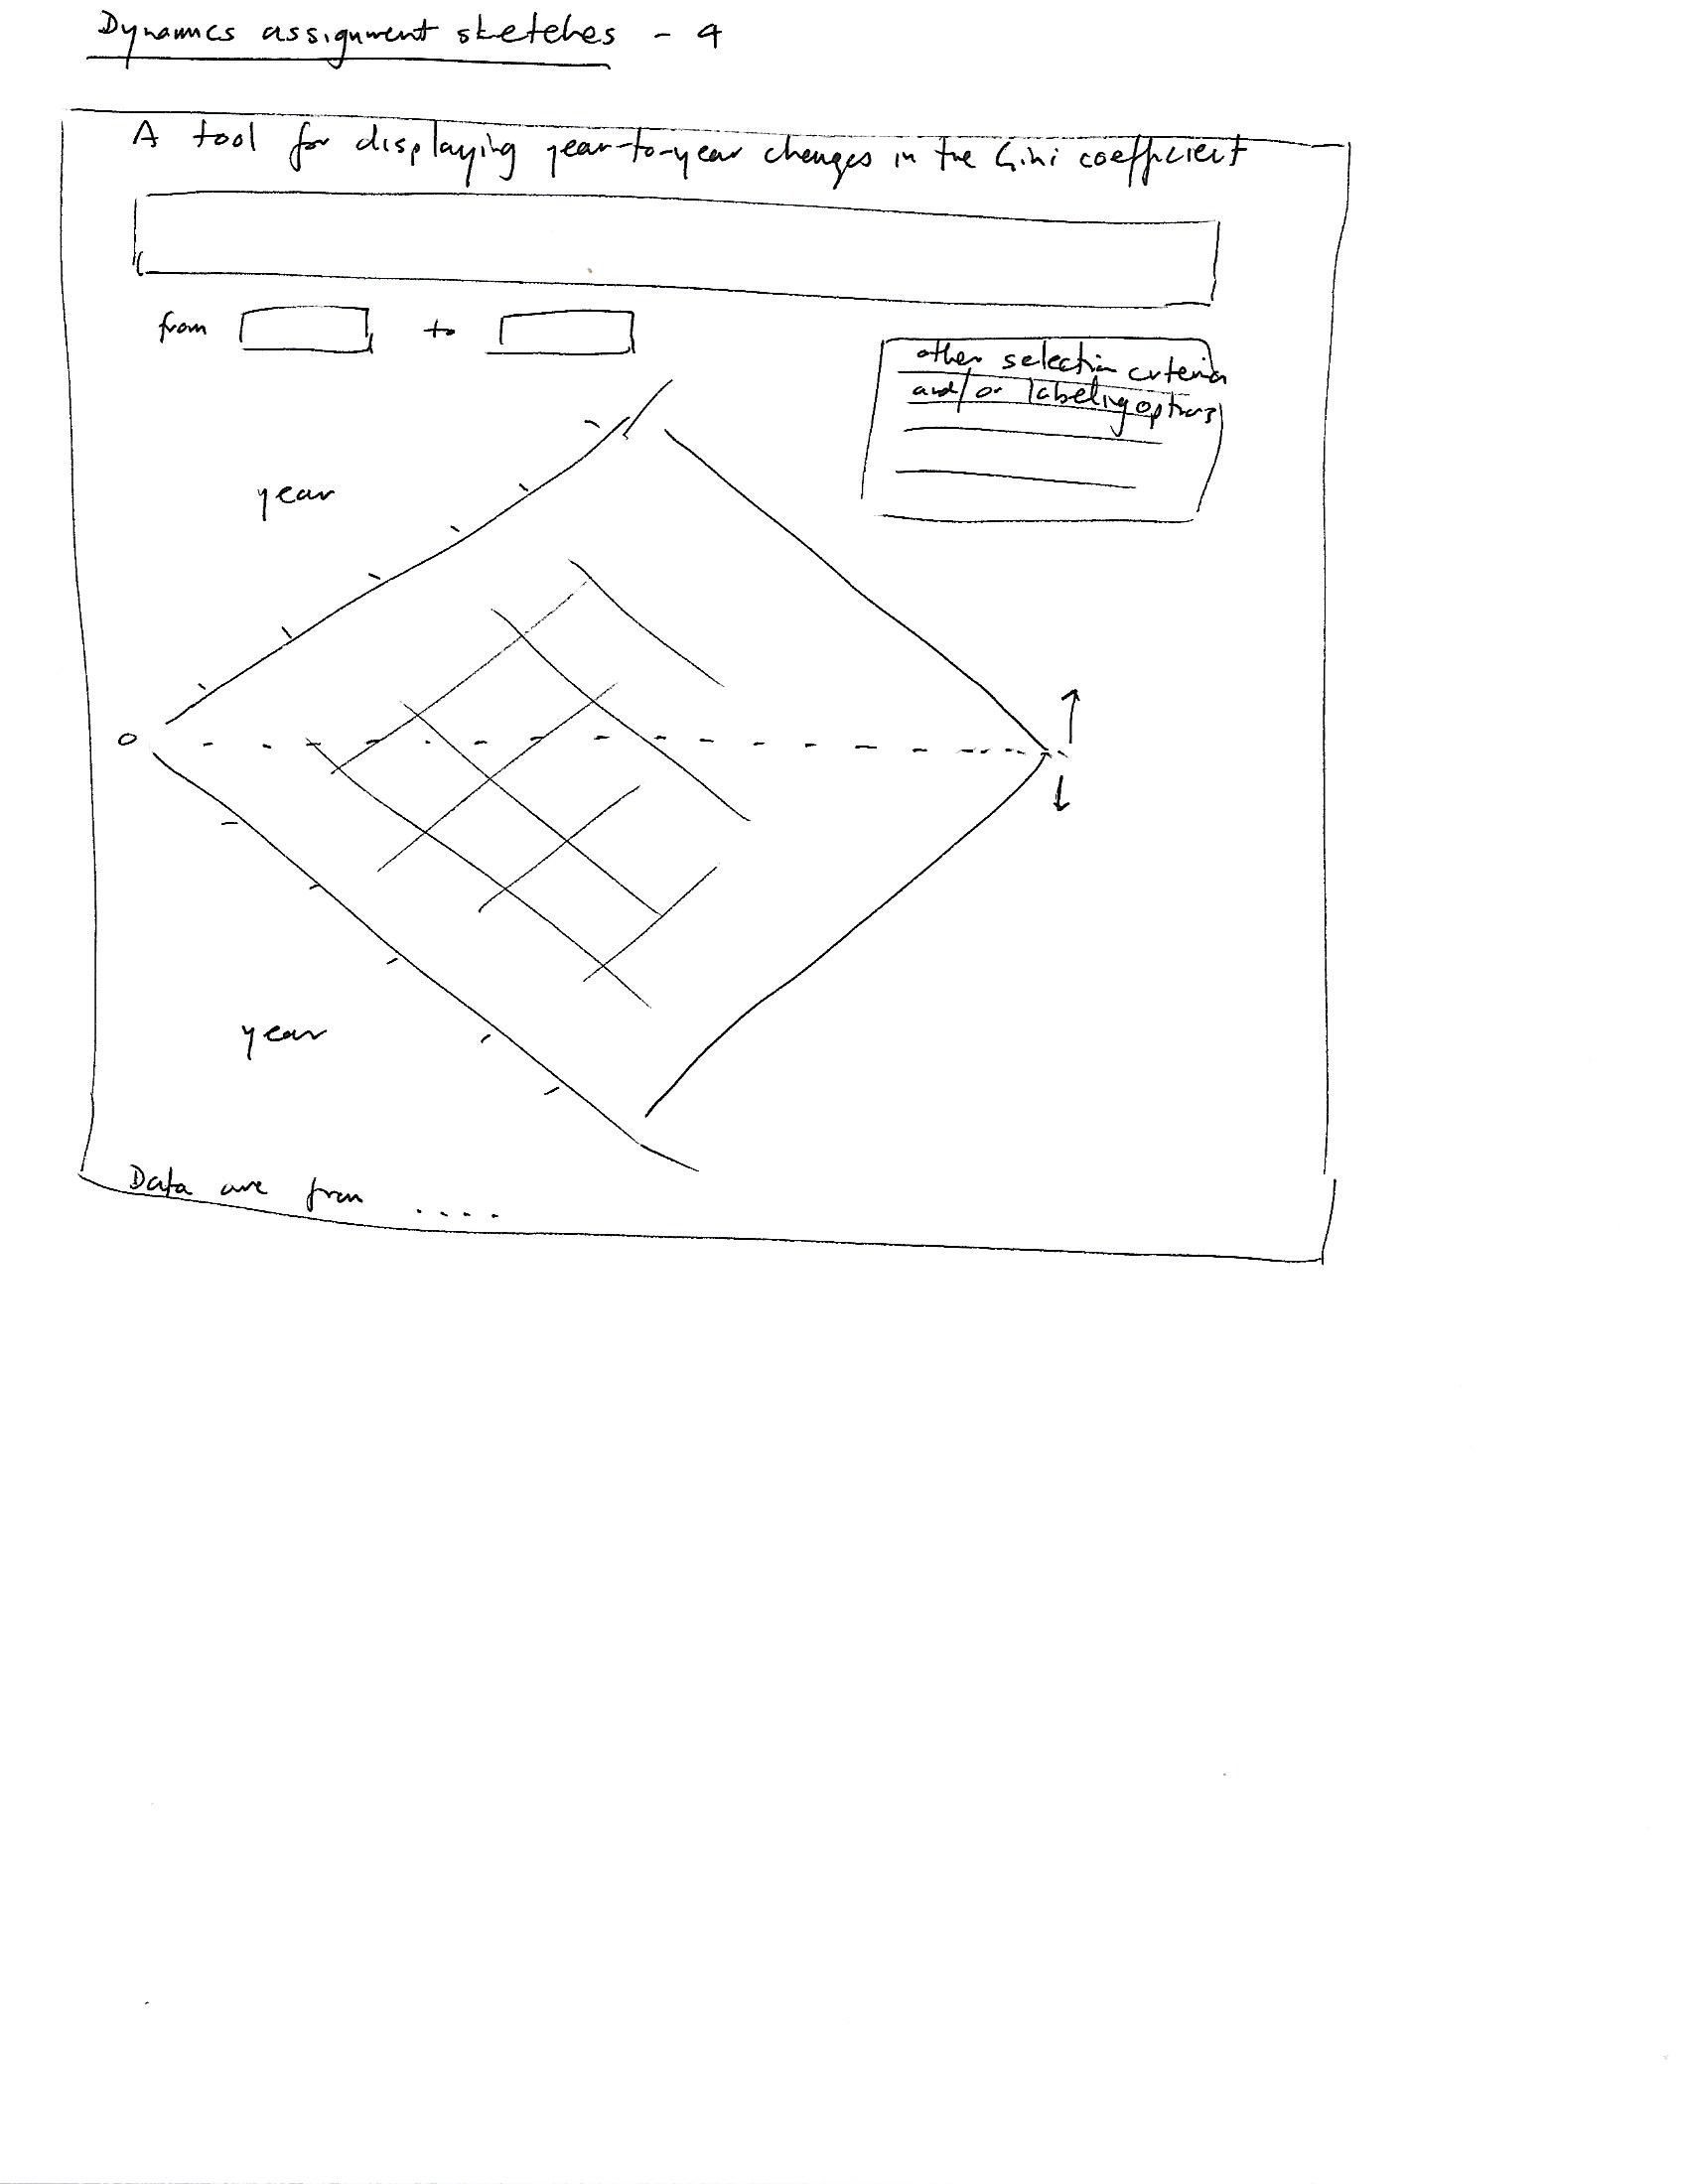 Dynamics assignment sketches - 4
A tool for displaying year-to-year changes in the Gini coefficient
from to
other selection criteria
and/or labeling options
year
0
year
Data are from ....